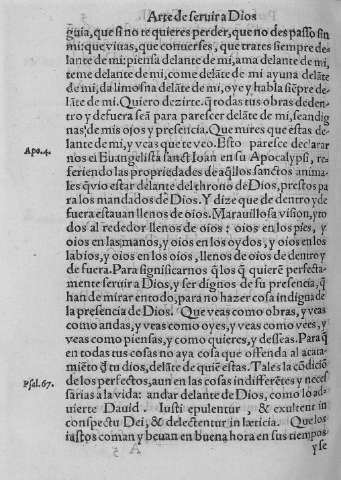 Arte de seruir a Dios
guia, que si no te quieres perder, que no des passo sin
mi: que viuas, que conuerses, que trates siempre de-
lante de mi: piensa delante de mi, ama delante de mi,
teme delante de mi, come delãte de mi ayuna delãte
de mi, da limosna delãte de mi, oye y habla siẽpre de-
lãte de mi. Quiero dezirte. q̃ todas tus obras de den-
tro y de fuera seã para parescer delãte de mi, sean dig
nas de mis ojos y presencia. Que mires que estas de-
Apo. 4.
lante de mi, y veas que te veo. Esto paresce declarar
nos el Euangelista sanct Ioan en su Apocalypsi, re-
feriendo las propriedades de aq̃llos sanctos anima-
les q̃ vio estar delante del throno de Dios, prestos pa
ra los mandados de Dios. Y dize que de dentro y de
fuera estauan llenos de oios. Marauillosa vision, y to
dos al rededor llenos de oios: oios en los pies, y
oios en las manos, y oios en los oydos, y oios en los
labios, y oios en los oios, llenos de oios de dentro y
de fuera. Para significarnos q̃ los q̃ quierẽ perfecta-
mente seruir a Dios, y ser dignos de su presencia, q̃
han de mirar en todo, para no hazer cosa indigna de
la presencia de Dios. Que veas como obras, y veas
como andas, y veas como oyes, y veas como vees, y
veas como piensas, y como quieres, y desseas. Para q̃
en todas tus cosas no aya cosa que offenda al acata-
miẽto d̃ tu dios, delãte de quiẽ estas. Tal es la cõdiciõ
Psal. 67.
de los perfectos, aun en las cosas indifferẽtes y neces
sarias a la vida: andar delante de Dios, como lo ad-
uierte Dauid. Iusti epulentur, & exultent in
conspectu Dei, & delectentur in læticia. Que los
iustos coman y beuan en buena hora en sus tiempos
y se